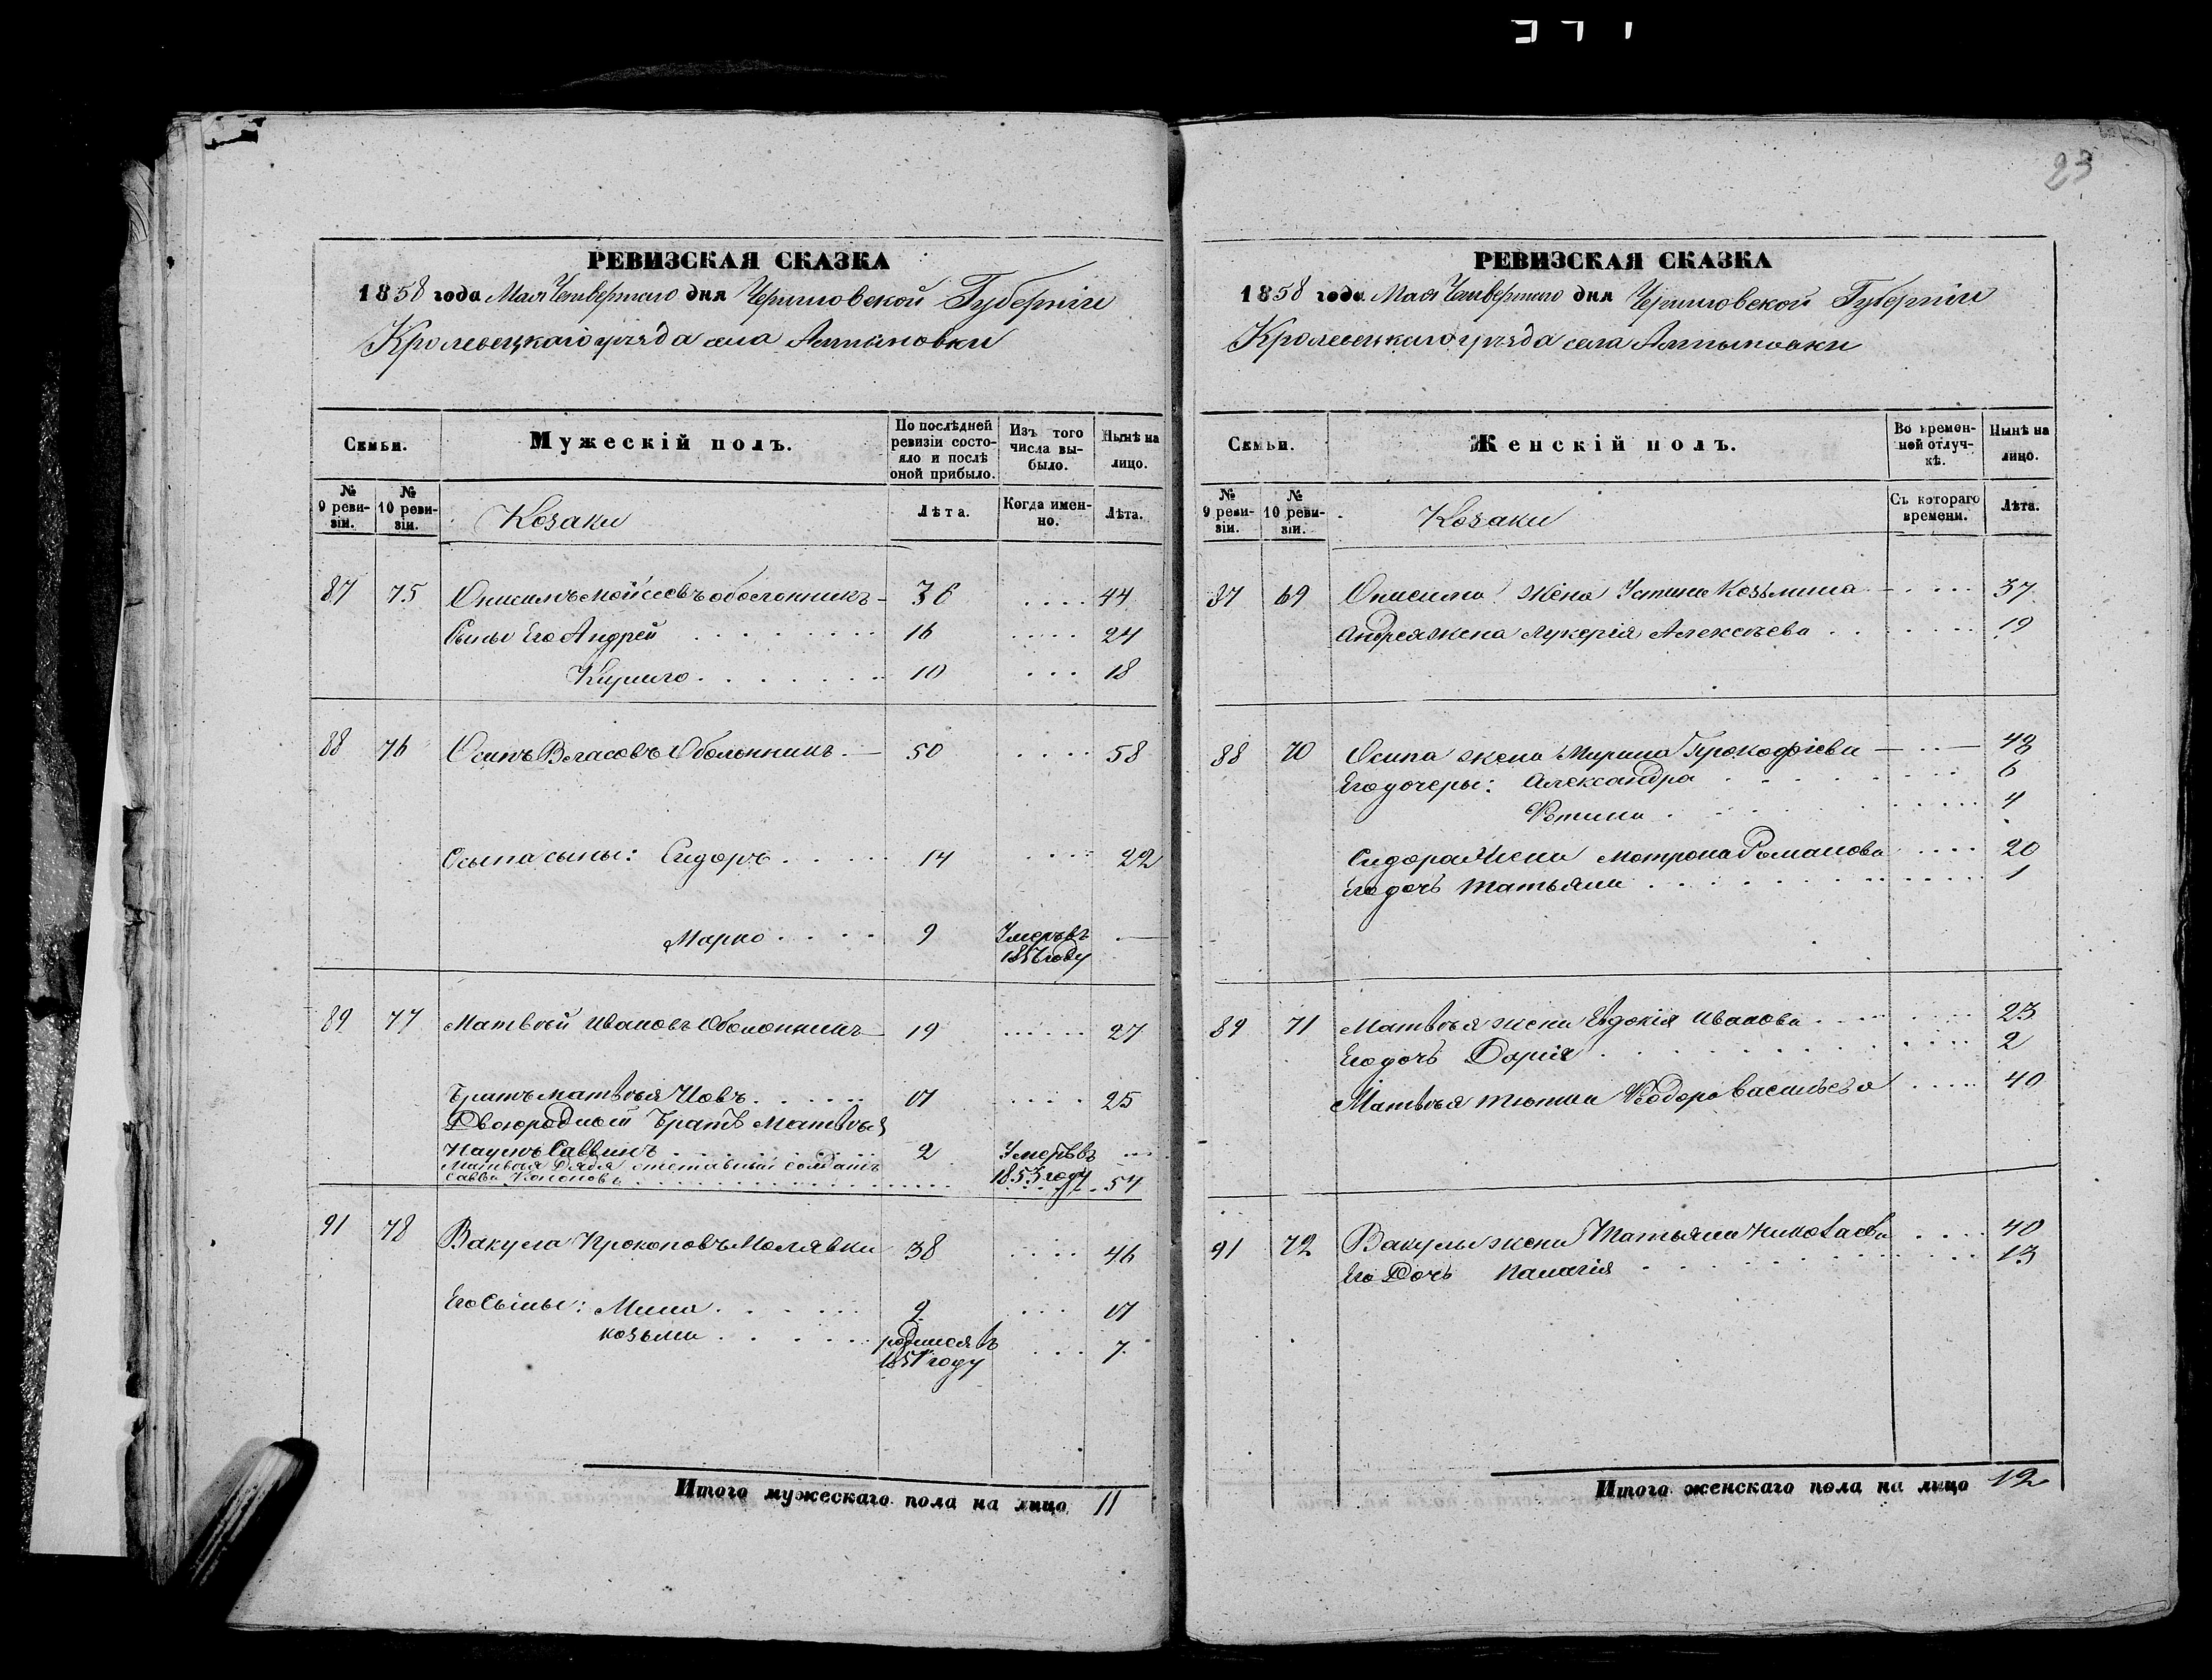 23
РЕВИЗСКАЯ СКАЗКА
1858 года Мая Четвертого дня Черниговской Губернiи
Кролевецкаго уезда села Алтыновки
Семьи.
Мужескiй полъ.
По послѣдней ревизiи состо-
яло и послѣ
оной прибыло.
Изъ того
числа вы-
было.
Нынѣ на
лицо.
№
9 реви-
зiи.
№
10 реви-
зiи.
Козаки
Лѣта.
Когда имен-
но.
Лѣта.
87 75 Онисимъ Мойсеевъ Оболонникъ 36 .... 44
Сыны Его Андрей 16 .... 24
Кирило 10 ... 18
88 76 Осипъ Власовъ Оболонникъ 50 .... 58
Осипа сыны: Сидоръ 14 .... 22
Марко 9 Умеръ въ —
году
89 77 Матвѣй Ивановъ Оболонникъ 19 ..... 27
Братъ Матвѣя Иовъ 17 .... 25
Двоюродный Братъ Матвѣя
Наумъ Саввинъ 2 Умеръ въ ...
Матвѣя Дядя отставный солдатъ 1853 году
Савва Кононовъ 54
91 78 Вакула Прокоповъ Малявка 38 .... 46
Его Сыны: Мина 9 ... 17
Козьма родился въ ... 7
1851 году
Итого мужескаго пола на лицо 11
РЕВИЗСКАЯ СКАЗКА
1858 года Мая Четвертого дня Черниговской Губернiи
Кролевецкаго уезда села Алтыновки
Семьи.
Женскiй полъ.
Во времен-
ной отлуч-
кѣ.
Нынѣ на
лицо.
№
9 реви-
зiи.
№
10 реви-
зiи.
Козаки
Съ котораго
времени.
Лѣта.
87 69 Онисима жена Устина Козьмина 37
Андрея жена Лукерiя Алексѣева 19
88 70 Осипа жена Марина Прокофiева 48
Его дочеры: Александра 6
Фотина 4
Сидора Жена Матрона Романова 20
Его дочь Татьяна 1
89 71 Матвѣя жена Евдокiя Иванова 23
Его дочь Дарiя 2
Матвѣя тютка Федора Васильева 40
91 72 Вакулы жена Татьяна Николаева 40
Его Дочь Палагiя 13
Итого женскаго пола на лицо 12